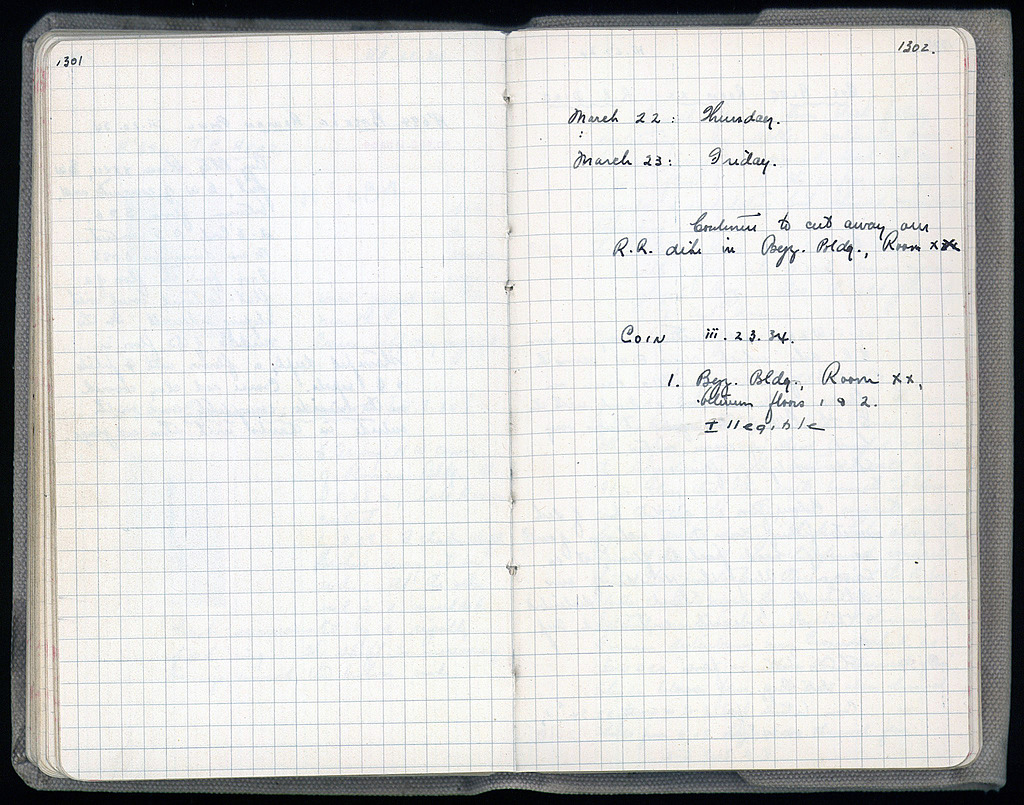 1301
1302.
March 22: Thursday.
March 23: Friday.
Continue to cut away our
R.R. dike in Byz. Bldg., Room xx
COIN iii.23.34.
1. Byz. Bldg., Room xx,
between floors 1 & 2.
Illegible